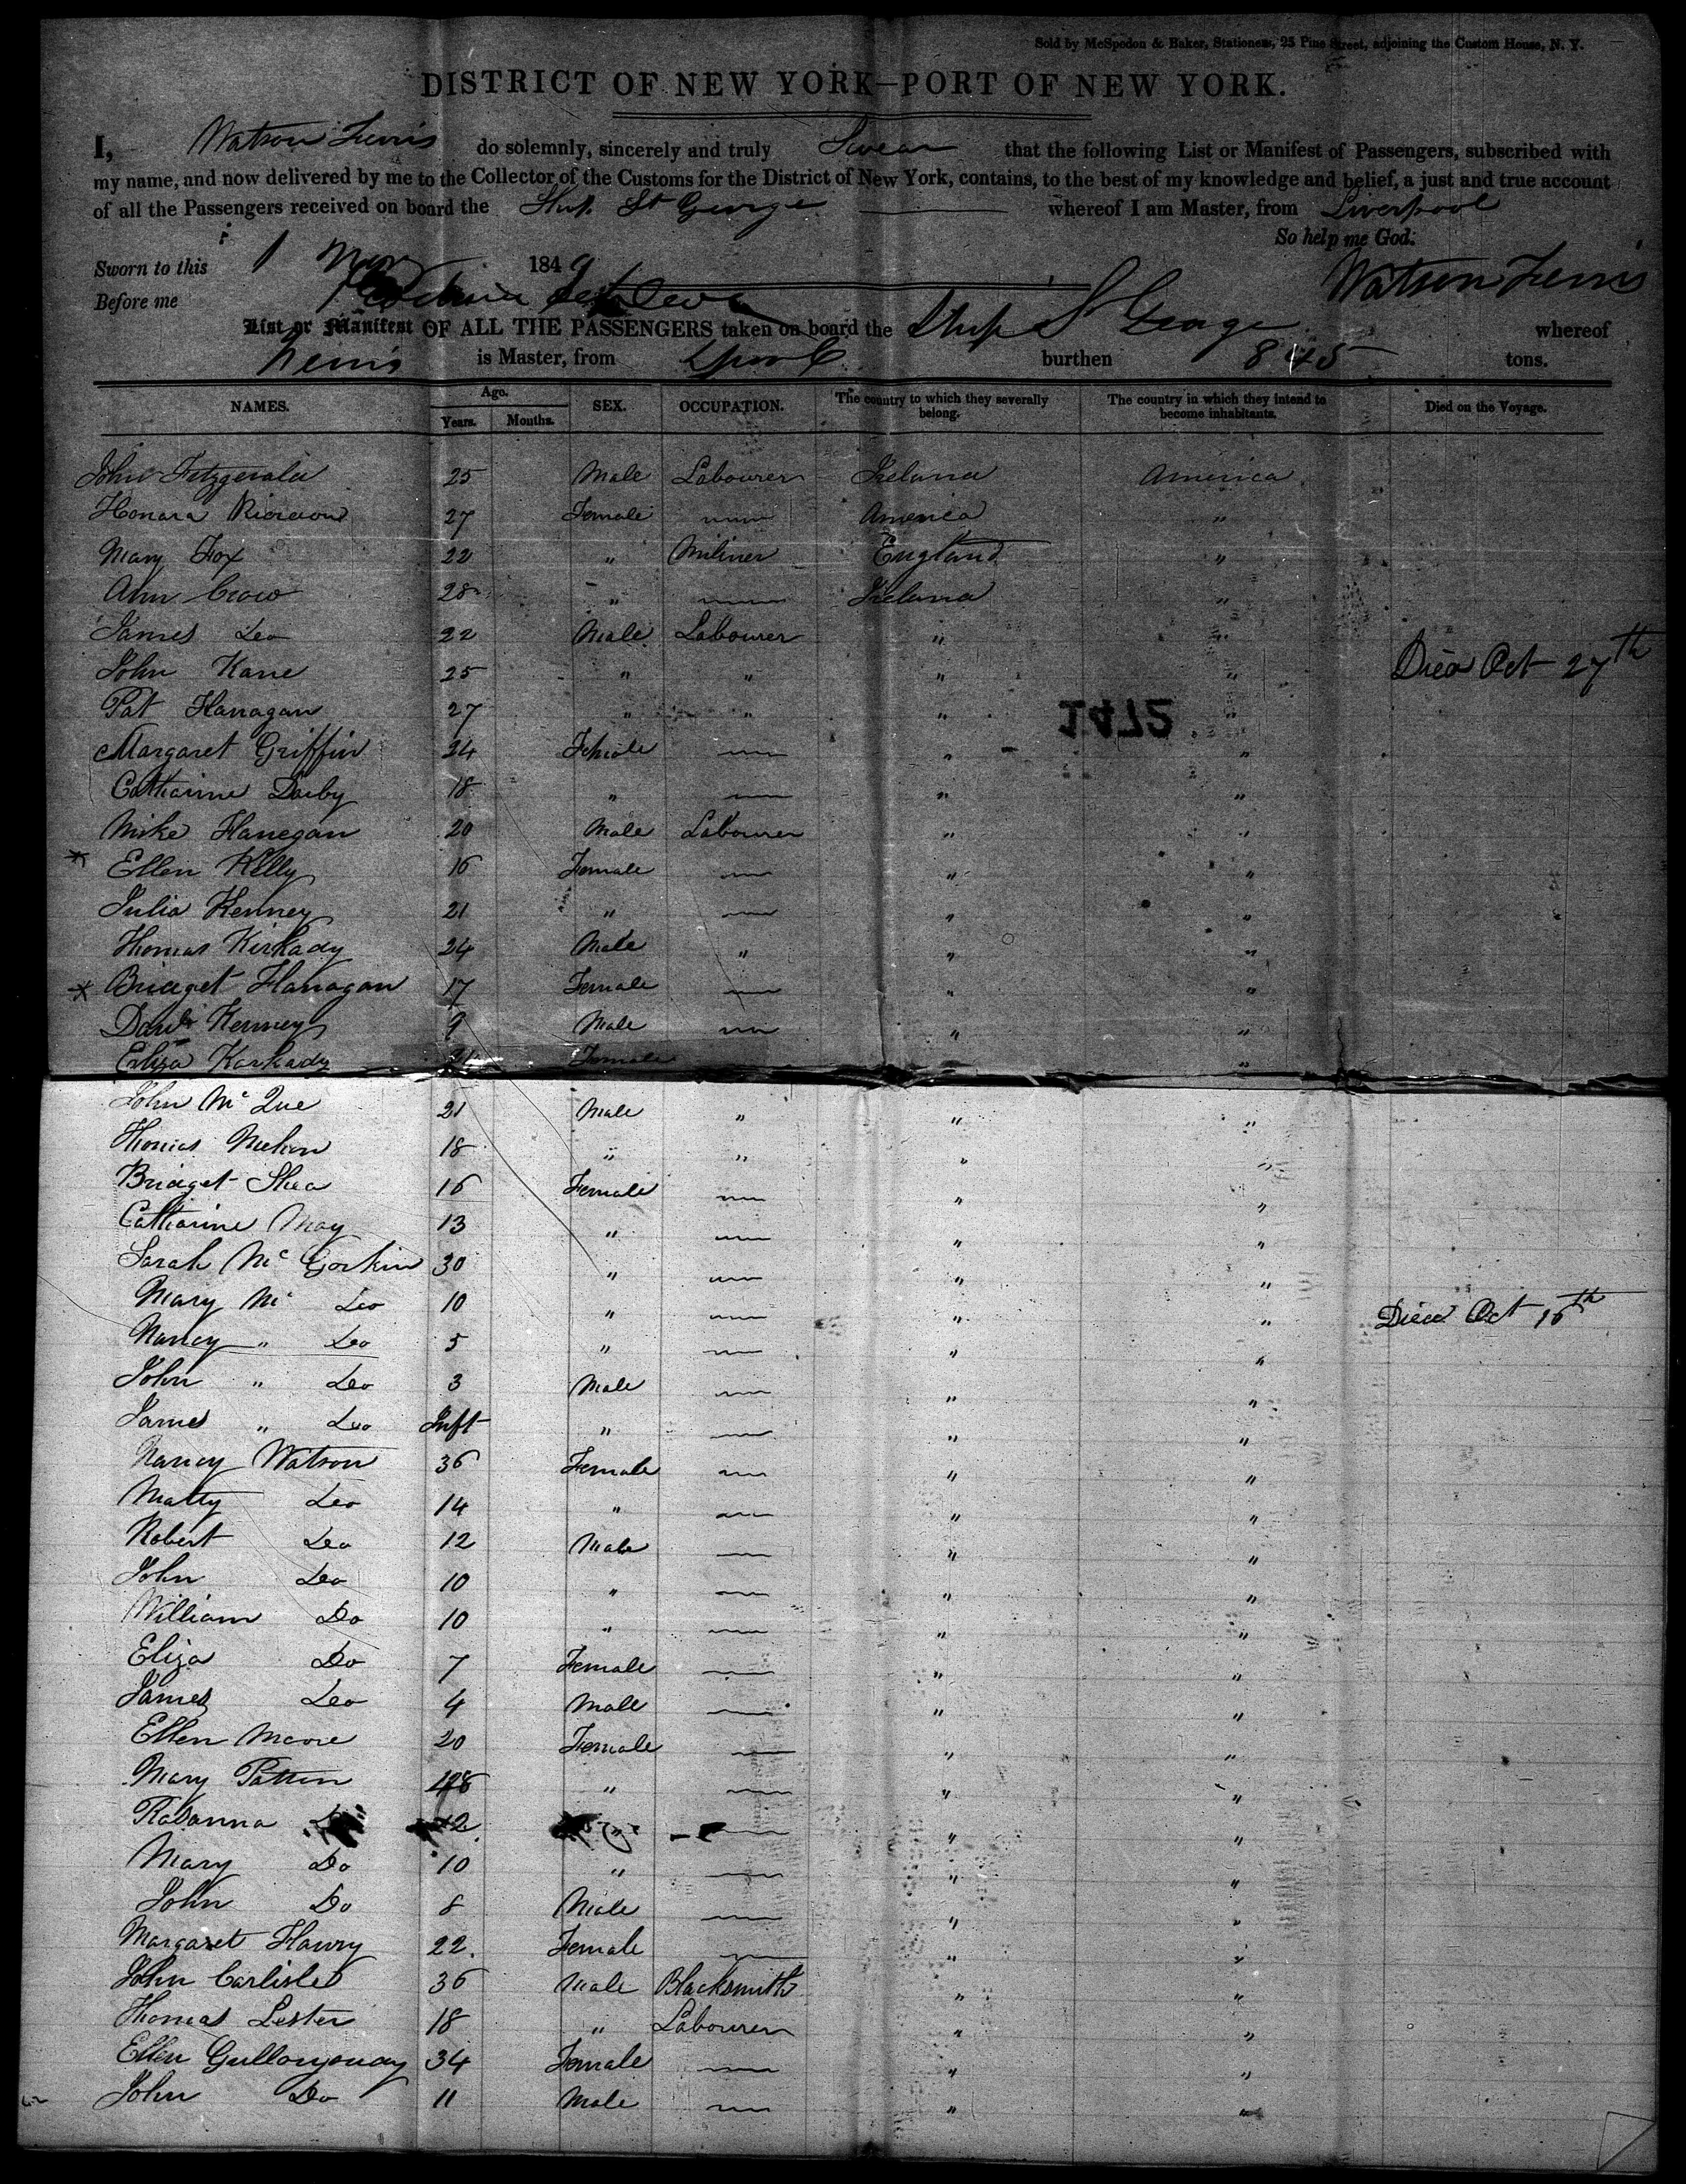 Sold by McSpedon & Baker, Stationers, 25 Pine Street, adjoining the Custom House, N. Y.
DISTRICT OF NEW YORK—PORT OF NEW YORK.
I, Watson Ferris do solemnly, sincerely and truly Swear that the following List or Manifest of Passengers, subscribed with
my name, and now delivered by me to the Collector of the Customs for the District of New York, contains, to the best of my knowledge and belief, a just and true account
of all the Passengers received on board the Ship St George whereof I am Master, from Liverpool
So help me God.
Sworn to this 1 Nov 1849 Watson Ferris
Before me
List or Manifest OF ALL THE PASSENGERS taken on board the Ship St George whereof
Ferris is Master, from Lpool burthen 845 tons.
NAMES. Age. Years. Months. SEX. OCCUPATION. The country to which they severally belong. The country in which they intend to become inhabitants. Died on the Voyage.
John Fitzgerald 25 Male Labourer Ireland America
Honara Riordon 27 Female — America "
Mary Fox 22 " Miliner England "
Ann Crow 28 " — Ireland "
James Do 22 Male Labourer " "
John Kane 25 " " " " Died Oct 27th
Pat Flanagan 27 " " " "
1472
Margaret Griffin 24 Female — " "
Catharine Darby 18 " — " "
Mike Flanegan 20 Male Labourer " "
* Ellen Kelly 16 Female — " "
Julia Kenney 21 " — " "
Thomas Kirkady 24 Male " " "
* Bridget Flanagan 17 Female — " "
David Kenney 9 Male — " "
Eliza Karkady 21 Female "
John Mc Que 21 Male " " "
Thomas Mehan 18 " " " "
Bridget Shea 16 Female — " "
Catharine May 13 " — " "
Sarah Mc Gorkin 30 " — " "
Mary Mc Do 10 " — " " Died Oct 16th
Nancy " Do 5 " — " "
John " Do 3 Male — " "
James " Do Inft " — " "
Nancy Watson 36 Female — " "
Matty Do 14 " — " "
Robert Do 12 Male — " "
John Do 10 " — " "
William Do 10 " — " "
Eliza Do 7 Female — " "
James Do 4 Male — " "
Ellen Moore 20 Female — " "
Mary Patten " — " "
Rosanna 12 " — " "
Mary Do 10 " — " "
John Do 8 Male — " "
Margaret Flawry 22 Female — " "
John Carlisle 36 Male Blacksmith " "
Thomas Lester 18 " Labourer " "
Ellen 34 Female — " "
John Do 11 Male — " "